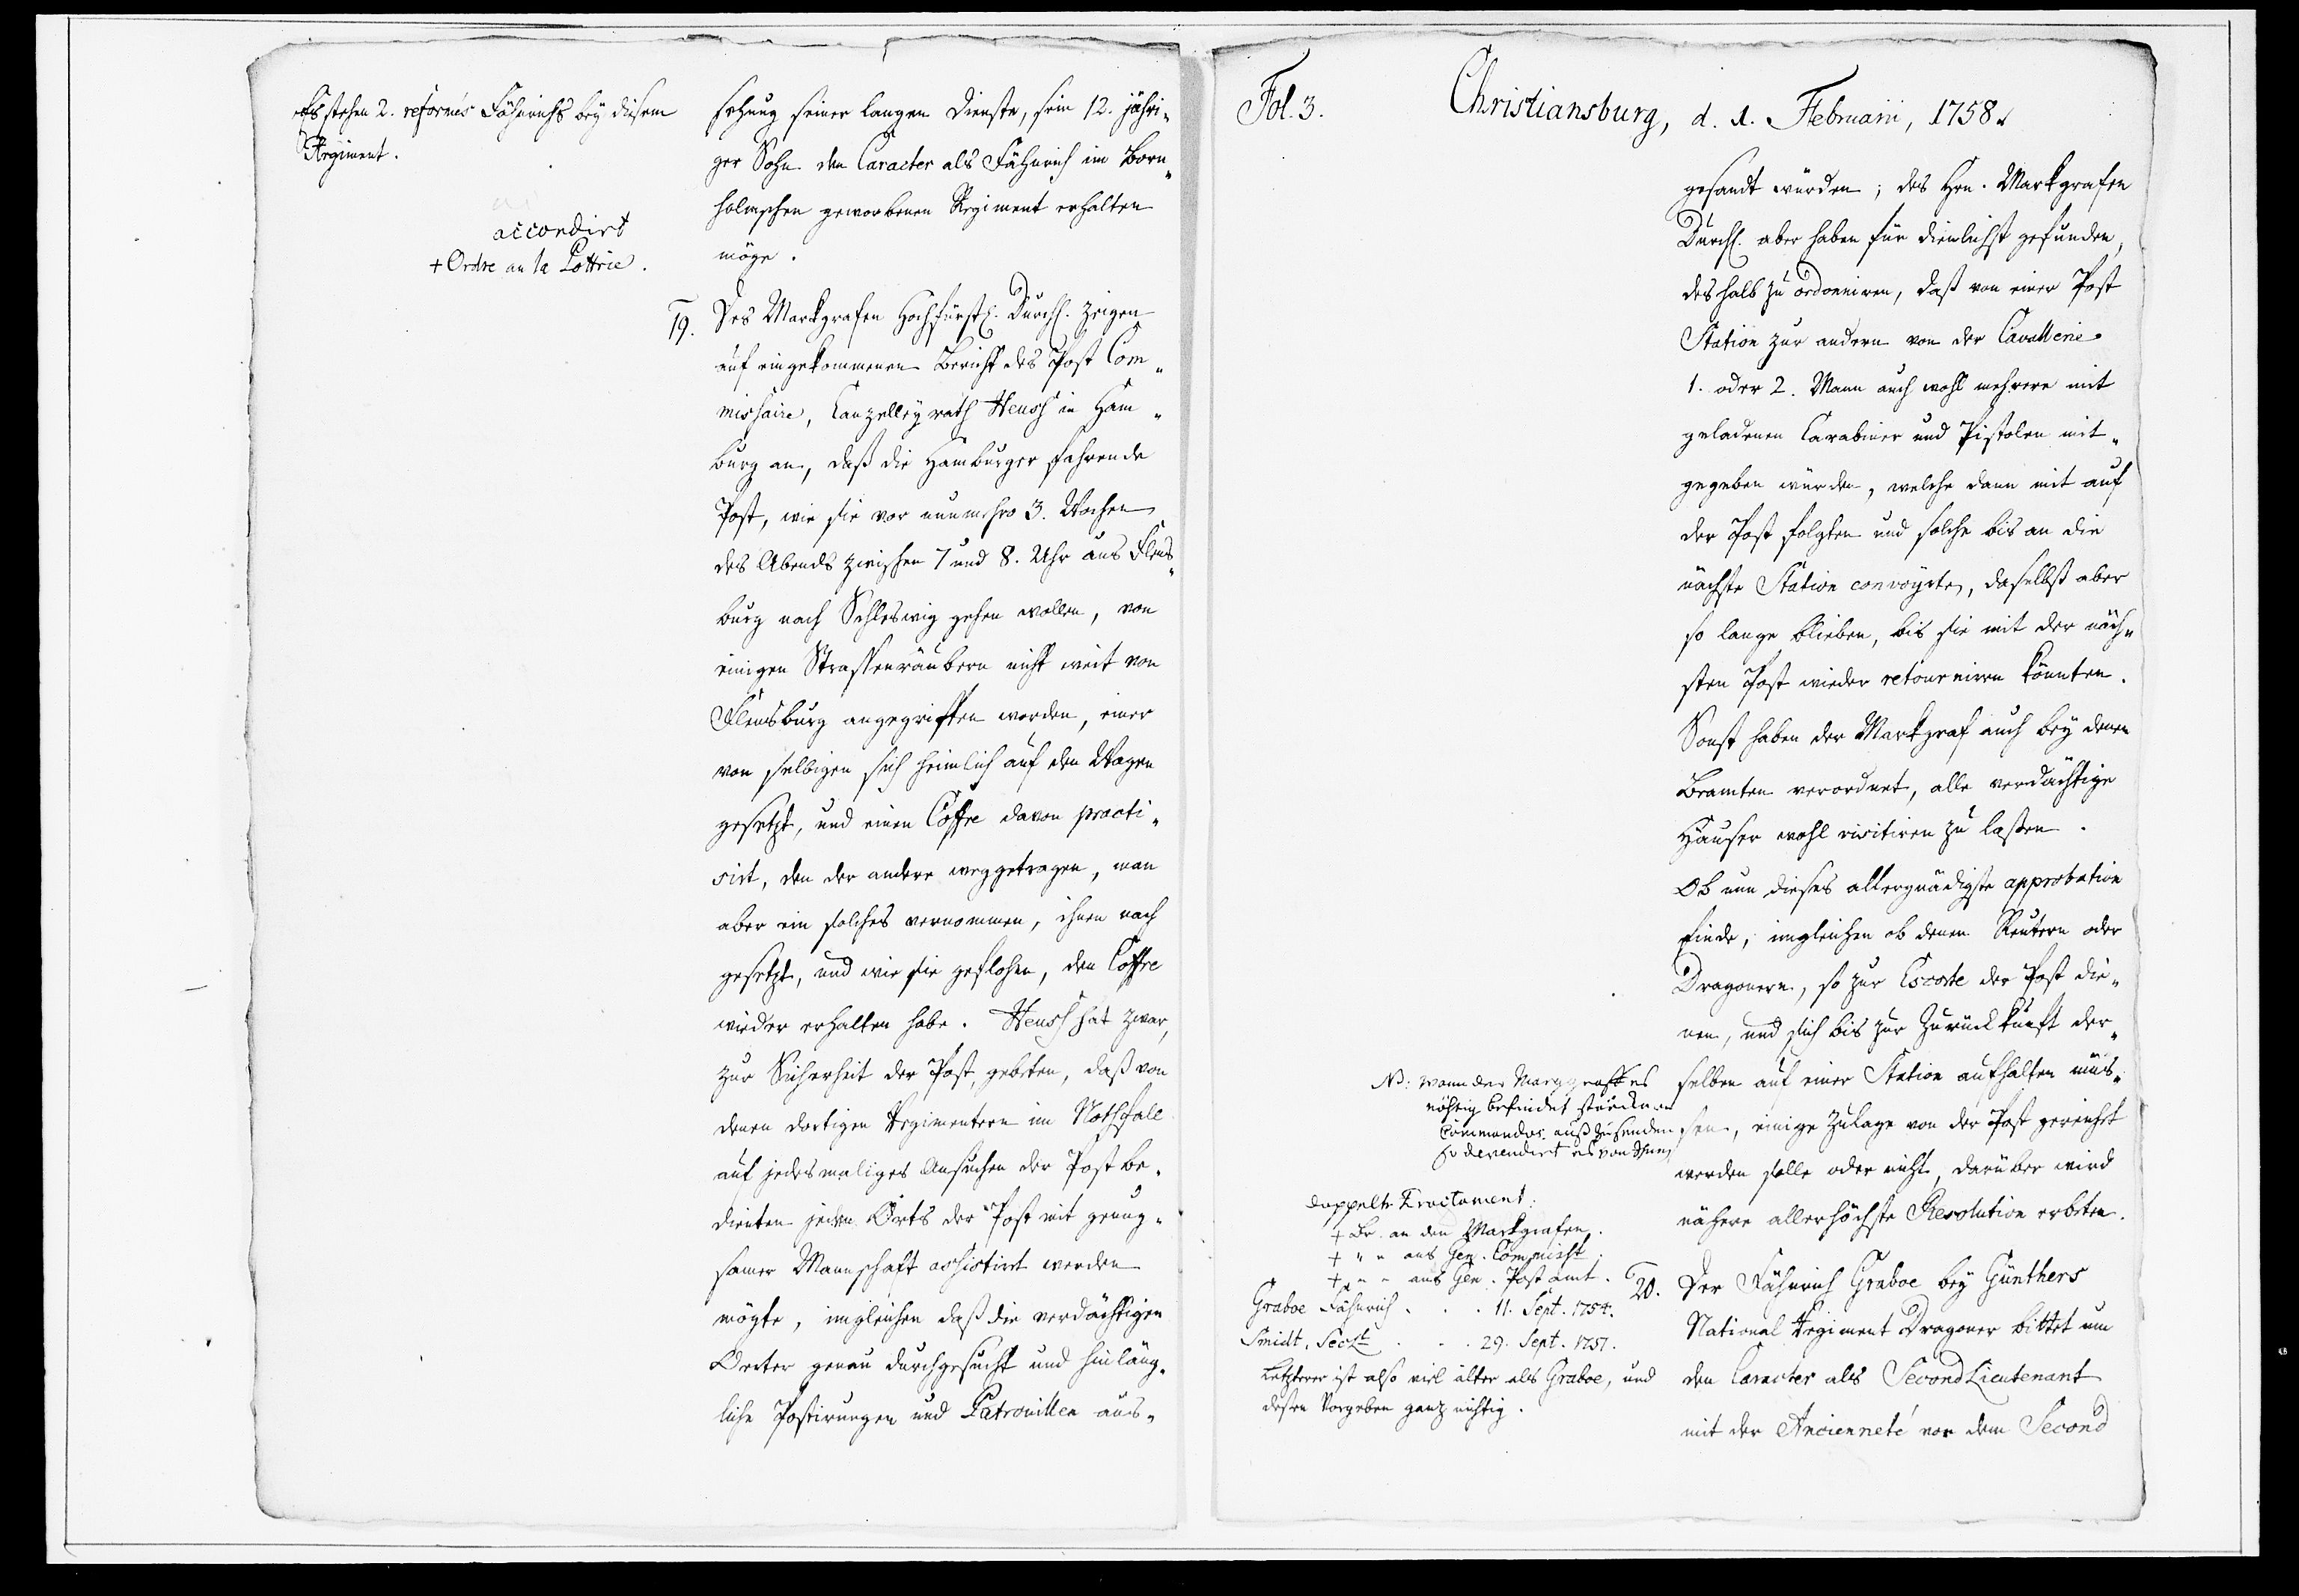 Es stehen 2. reformés Fähnrichs bey diesem
Regiment.
accordirt
+ Ordre an la Pottrie.
sehung seiner langen Dienste, sein 12. jähri-
ger Sohn den Caracter als Fähnrich im Born-
holmschen geworbenen Regiment erhalten
möge.
19. Des Markgrafen Hochfürstl. Durchl. zeigen
auf eingekommenen Bericht des Post Com-
missaire, Canzelleyrath Heuss in Ham-
burg an, daß die Hamburger fahrende
Post, wie sie vor nunmehro 3. Wochen
des Abends zwischen 7 und 8. Uhr aus Flens-
burg nach Schleswig gehen wollen, von
einigen Strassenräubern nicht weit von
Flensburg angegriffen worden, einer
von selbigen sich heimlich auf den Wagen
gesetzt, und einen Coffre davon practi-
sirt, den der andere weggetragen, man
aber ein solches vernommen, ihnen nach
gesetzt, und wie sie geflohen, den Coffre
wieder erhalten habe. Heuss hat zwar,
zur Sicherheit der Post, gebeten, daß von
denen dortigen Regimentern im Nothfall
auf jedesmaliges Ansuchen der Post be-
dienten jeden Orts der Post mit genug-
samer Mannschaft assistirt werden
mögte, imgleichen daß die verdächtigen
Oerter genau durchgesucht und hinläng-
liche Postirungen und Patrouillen aus-
Fol. 3.
Christiansburg, d. 1. Februarii, 1758.
gesandt würden; des Hrn. Markgrafen
Durchl. aber haben für dienlichst gefunden,
deshalb zu ordonniren, daß von einer Post
Station zur andern von der Cavallerie
1. oder 2. Mann auch wohl mehrere mit
geladenen Carabiner und Pistolen mit-
gegeben würden, welche dann mit auf
der Post folgten und solche bis an die
nächste Station convoyrte, daselbst aber
so lange blieben, bis sie mit der näch-
sten Post wieder retourniren könnten.
Sonst haben der Markgraf auch bey denen
Beamten verordnet, alle verdächtige
Häuser wohl visitiren zu lassen.
Ob nun dieses allergnädigste approbation
finde, imgleichen ob denen Reutern oder
Dragonern, so zur Escorte der Post die-
nen, und sich bis zur Zurückkunft der-
selben auf einer Station aufhalten müs-
sen, einige Zulage von der Post gereichet
werden solle oder nicht, darüber wird
nähere allerhöchste Resolution erbeten.
NB: wann der Marggraff es
nöhtig befindet stärckere
Commandos auß zu senden
so dependirt es von Ihm
doppelte Tractament.
+ Br. an den Markgrafen.
+ " " ans Gen. Commisst.
+ " " ans Gen. Postamt.
Graboe Fähnrich . . . 11. Sept. 1754.
Smidt, SecLt . . . 29. Sept. 1751.
Letzterer ist also viel älter als Graboe, und
dessen Vorgeben ganz nichtig.
20. Der Fähnrich Graboe bey Günthers
National Regiment Dragoner bittet um
den Caracter als Second Lieutenant
mit der Ancienneté vor dem Second